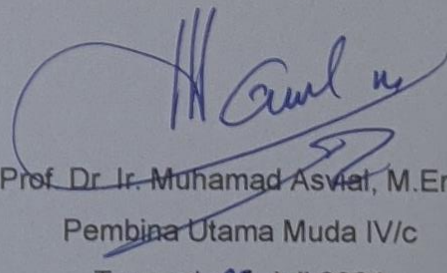 Prof. Dr. Ir. Muhamad Asvial, M.En
Pembina Utama Muda IV/c